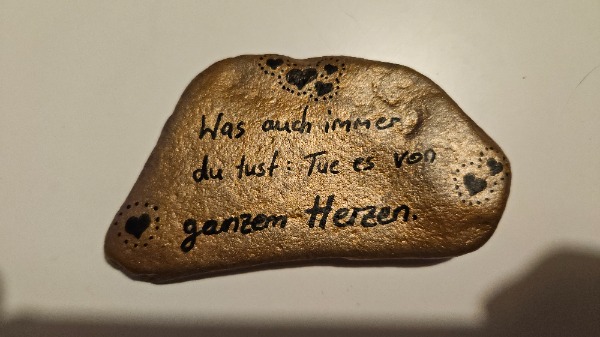 Was auch immer
du tust: Tue es von
ganzem Herzen.